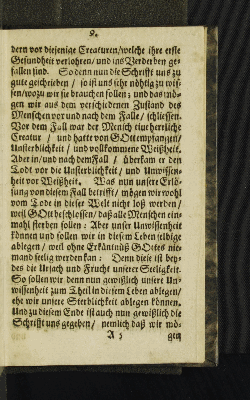 9.
dern vor diejenige Creaturen/welche ihre erste
Gesundheit verlohren/und ins Verderben ge-
fallen sind. So denn nun die Schrifft uns zu
gute geschrieben / so ist uns ihr nöhtig zu wis-
sen/wozu wir sie brauchen sollen; und das mö-
gen wir aus dem verschiedenen Zustand des
Menschen vor und nach dem Falle / schliessen.
Vor dem Fall war der Mensch eine herrliche
Creatur / und hatte von GOtt empfangen/
Unsterblichkeit / und vollkommene Weißheit.
Aber in/und nach dem Fall / überkam er den
Tod vor die Unsterblichkeit / und Unwissen-
heit vor Weißheit. Was nun unsere Erlö-
sung von diesem Fall betrifft / mögen wir wohl
vom Tode in dieser Welt nicht loß werden/
weil GOtt beschlossen/ daß alle Menschen ein-
mahl sterben sollen: Aber unser Unwissenheit
können und sollen wir in diesem Leben selbige
ablegen/ weil ohne Erkäntnüß GOttes nie-
mand seelig werden kan: Denn die ist bey-
des die Ursach und Frucht unserer Seeligkeit.
So sollen wir denn nun gewißlich unsere Un-
wissenheit zum Theil in diesem Leben ablegen/
ehe wir unsere Sterblichkeit ablegen können.
Und zu diesem Ende ist auch nun gewißlich die
Schrifft uns gegeben/ nemlich daß wir mö-
A 5 gen